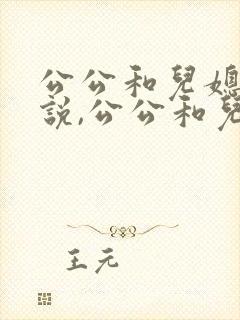 公公和兒媳
說,公公和兒
王元